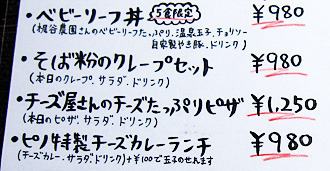 ・ベビーリーフ丼 5食限定 ¥980
(梶谷農園さんのベビーリーフたっぷり、温泉玉子、チョリソー
自家製やき豚、ドリンク)
・そば粉のクレープセット ¥980
(本日のクレープ、サラダ、ドリンク)
・チーズ屋さんのチーズたっぷりピザ ¥1,250
(本日のピザ、サラダ、ドリンク)
・ピノ特製チーズカレーランチ ¥980
(チーズカレー、サラダ、ドリンク)+¥100で玉子のせんます